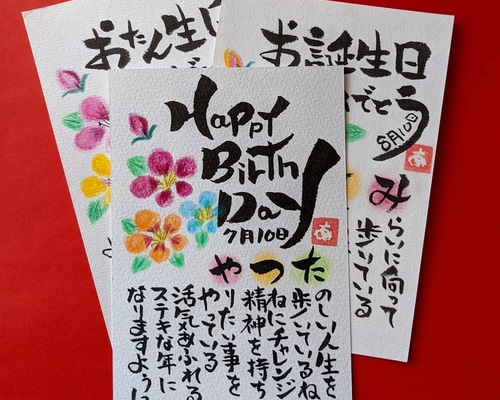 Happy
Birth
Day
7月10日
あ
たのしい人生を
歩いているね
つねにチャレンジ
精神を持ち
やりたい事を
やっている
活気あふれる
ステキな年に
なりますように
お誕生日
でとう
8月10日
あ
みらいに向って
歩いている
おたん生日